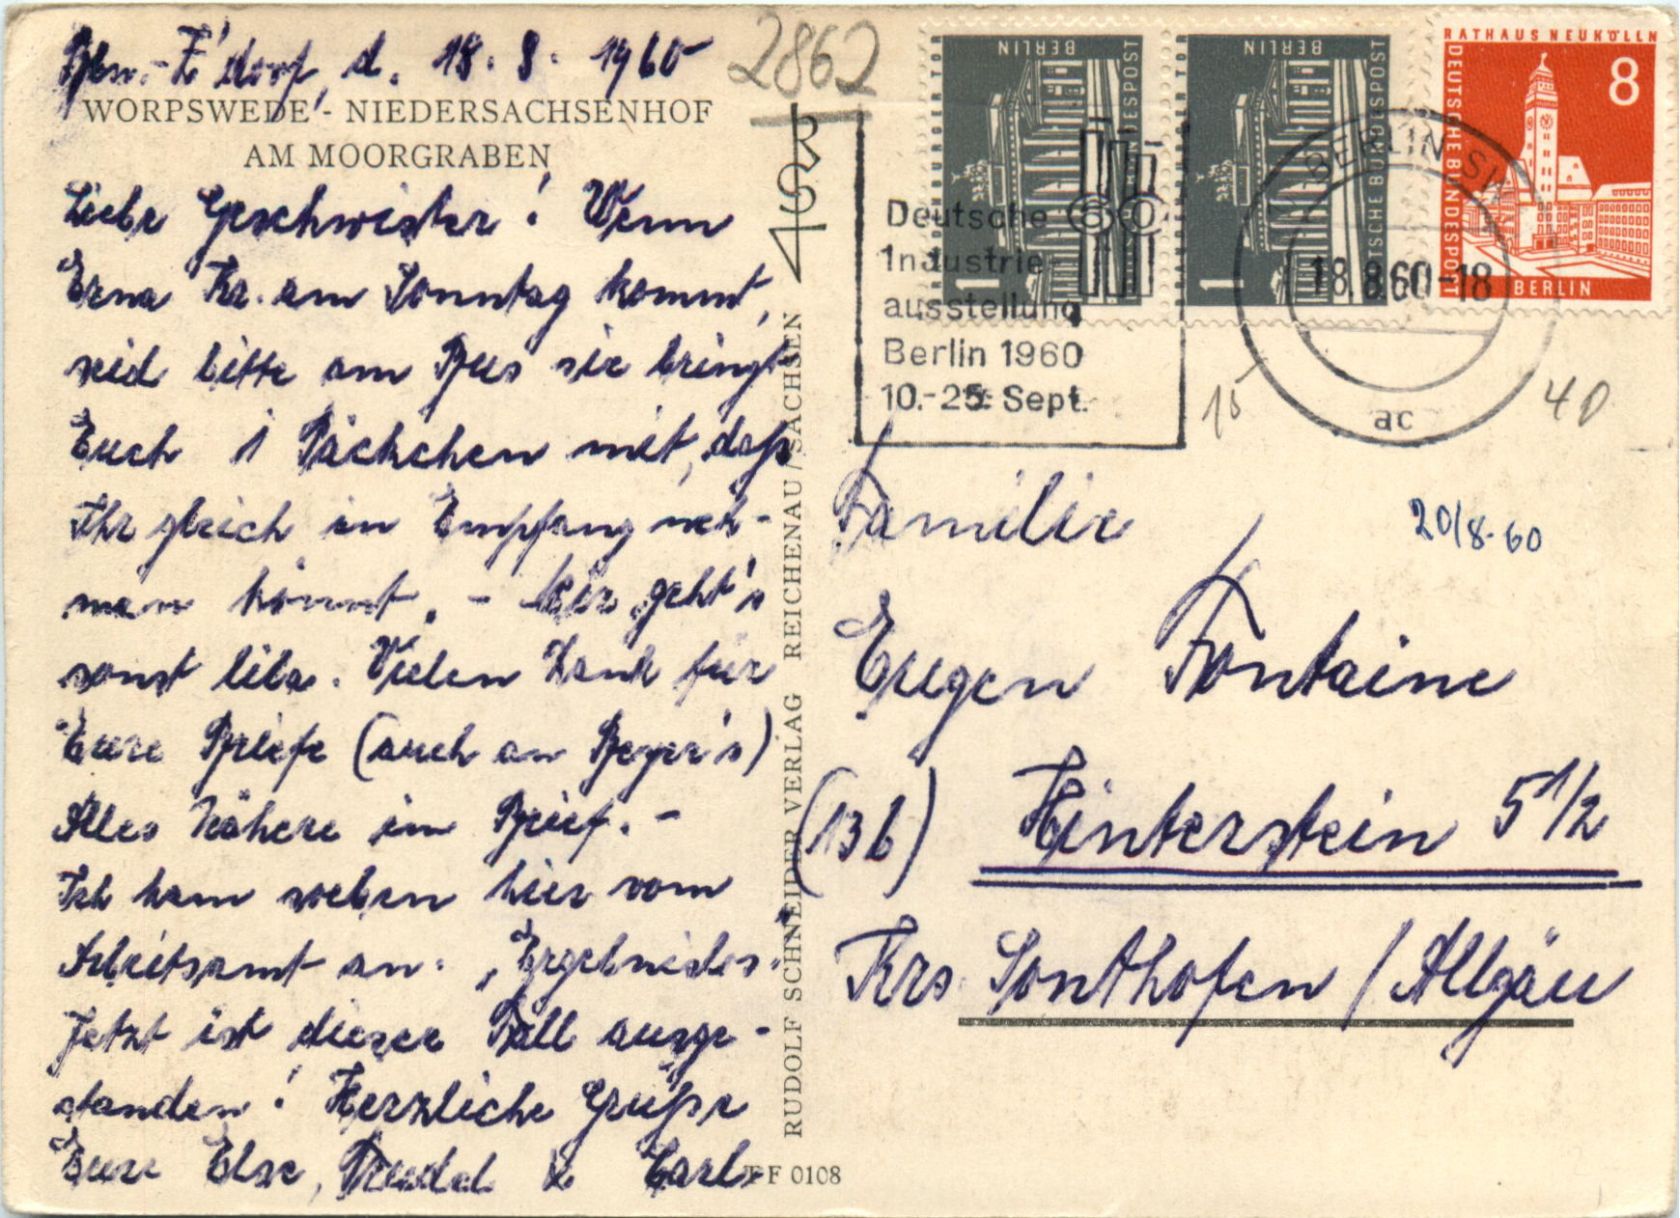 Bln.-Z'dorf, d. 18. 8. 1960
WORPSWEDE - NIEDERSACHSENHOF
AM MOORGRABEN
Liebe Geschwister! Wenn
Erna Kr. am Sonntag kommt,
seid bitte am Bus sie bringt
Euch 1 Päckchen mit, daß
Ihr gleich in Empfang neh-
men könnt. - Hier geht's
sonst lila. Vielen Dank für
Eure Briefe (auch an Beyer's)
Alles Nähere im Brief. -
Ich kam soeben hier vom
Arbeitsamt an.
Jetzt ist dieser Fall ausge-
standen! Herzliche Grüße
Eure Else, Trudel & Carl
2862
RUDOLF SCHNEIDER VERLAG REICHENAU / SACHSEN
FF 0108
BRANDENBURGER TOR
BERLIN
DEUTSCHE BUNDESPOST
1
BRANDENBURGER TOR
BERLIN
DEUTSCHE BUNDESPOST
1
RATHAUS NEUKÖLLN
DEUTSCHE BUNDESPOST
8
BERLIN
60
Deutsche
Industrie-
ausstellung
Berlin 1960
10.-25. Sept.
BERLIN SW
18.8.60-18
ac
15
40
20/8.60
Familie
Eugen Fontaine
(13b) Hinterstein 5 1/2
Krs Sonthofen / Allgäu